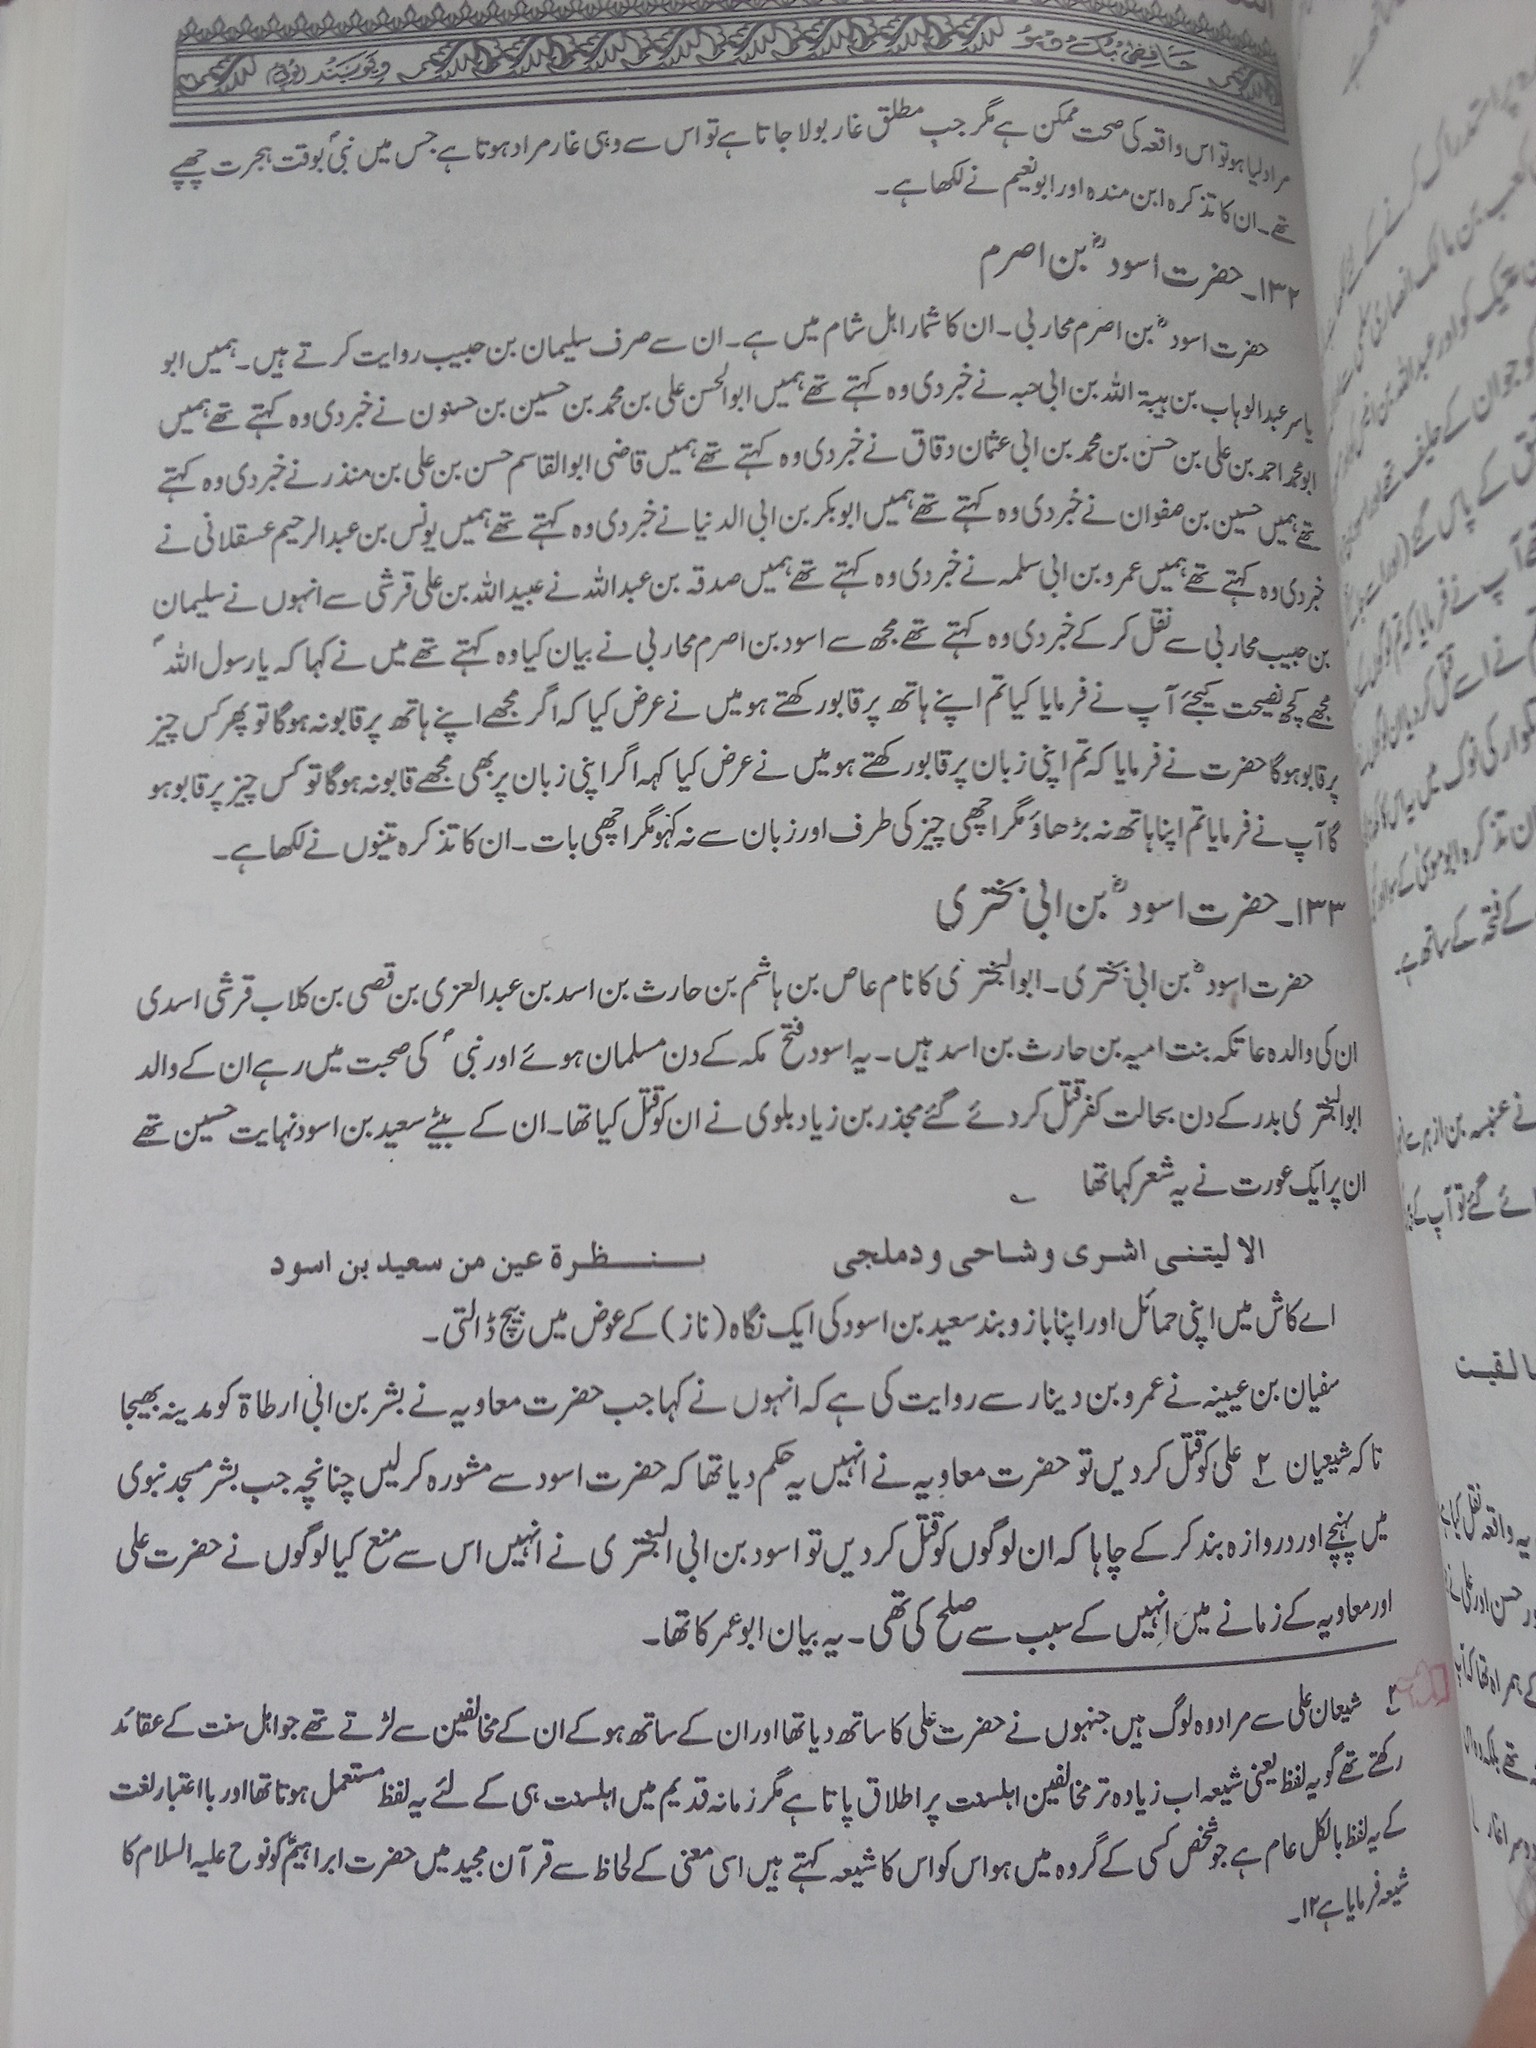 حافظی بک ڈپو
دیوبند
مراد لیا ہو تو اس واقعہ کی صحت ممکن ہے مگر جب مطلق غار بولا جاتا ہے تو اس سے وہی غار مراد ہوتا ہے جس میں نبیؐ بوقت ہجرت چھپے
تھے۔ ان کا تذکرہ ابن مندہ اور ابونعیم نے لکھا ہے۔
۱۳۲۔ حضرت اسودؓ بن اصرم
حضرت اسودؓ بن اصرم محاربی۔ ان کا شمار اہل شام میں ہے۔ ان سے صرف سلیمان بن حبیب روایت کرتے ہیں۔ ہمیں ابو
یاسر عبدالوہاب بن ہبۃ اللہ بن ابی حبہ نے خبر دی وہ کہتے تھے ہمیں ابوالحسن علی بن محمد بن حسین بن حسنون نے خبر دی وہ کہتے تھے ہمیں
ابومحمد احمد بن علی بن حسن بن محمد بن ابی عثمان دقاق نے خبر دی وہ کہتے تھے ہمیں قاضی ابوالقاسم حسن بن علی بن منذر نے خبر دی وہ کہتے
تھے ہمیں حسین بن صفوان نے خبر دی وہ کہتے تھے ہمیں ابوبکر بن ابی الدنیا نے خبر دی وہ کہتے تھے ہمیں یونس بن عبدالرحیم عسقلانی نے
خبر دی وہ کہتے تھے ہمیں عمرو بن ابی سلمہ نے خبر دی وہ کہتے تھے ہمیں صدقہ بن عبداللہ نے عبیداللہ بن علی قرشی سے انہوں نے سلیمان
بن حبیب محاربی سے نقل کر کے خبر دی وہ کہتے تھے مجھ سے اسود بن اصرم محاربی نے بیان کیا وہ کہتے تھے میں نے کہا کہ یا رسول اللہؐ
مجھے کچھ نصیحت کیجئے آپ نے فرمایا کیا تم اپنے ہاتھ پر قابو رکھتے ہو میں نے عرض کیا کہ اگر مجھے اپنے ہاتھ پر قابو نہ ہوگا تو پھر کس چیز
پر قابو ہوگا حضرت نے فرمایا کہ تم اپنی زبان پر قابو رکھتے ہو میں نے عرض کیا کہہ اگر اپنی زبان پر بھی مجھے قابو نہ ہوگا تو کس چیز پر قابو ہو
گا آپ نے فرمایا تم اپنا ہاتھ نہ بڑھاؤ مگر اچھی چیز کی طرف اور زبان سے نہ کہو مگر اچھی بات۔ ان کا تذکرہ تینوں نے لکھا ہے۔
۱۳۳۔ حضرت اسودؓ بن ابی بختری
حضرت اسودؓ بن ابی بختری۔ ابوالبختری کا نام عاص بن ہاشم بن حارث بن اسد بن عبدالعزی بن قصی بن کلاب قرشی اسدی
ان کی والدہ عاتکہ بنت امیہ بن حارث بن اسد ہیں۔ یہ اسود فتح مکہ کے دن مسلمان ہوئے اور نبیؐ کی صحبت میں رہے ان کے والد
ابوالبختری بدر کے دن بحالت کفر قتل کر دئے گئے مجذر بن زیاد بلوی نے ان کو قتل کیا تھا۔ ان کے بیٹے سعید بن اسود نہایت حسین تھے
ان پر ایک عورت نے یہ شعر کہا تھا ؎
الا لیتنی اشری وشاحی ودملجی بنظرة عین من سعید بن اسود
اے کاش میں اپنی حمائل اور اپنا بازو بند سعید بن اسود کی ایک نگاہ (ناز) کے عوض میں بیچ ڈالتی۔
سفیان بن عیینہ نے عمرو بن دینار سے روایت کی ہے کہ انہوں نے کہا جب حضرت معاویہ نے بشر بن ابی ارطاۃ کو مدینہ بھیجا
تاکہ شیعیان ۲؎ علی کو قتل کر دیں تو حضرت معاویہ نے انہیں یہ حکم دیا تھا کہ حضرت اسود سے مشورہ کر لیں چنانچہ جب بشر مسجد نبوی
میں پہنچے اور دروازہ بند کر کے چاہا کہ ان لوگوں کو قتل کر دیں تو اسود بن ابی البختری نے انہیں اس سے منع کیا لوگوں نے حضرت علی
اور معاویہ کے زمانے میں انہیں کے سبب سے صلح کی تھی۔ یہ بیان ابوعمر کا تھا۔
۲؎ شیعان علی سے مراد وہ لوگ ہیں جنہوں نے حضرت علی کا ساتھ دیا تھا اور ان کے ساتھ ہو کے ان کے مخالفین سے لڑتے تھے جو اہل سنت کے عقائد
رکھتے تھے گو یہ لفظ یعنی شیعہ اب زیادہ تر مخالفین اہلسنت پر اطلاق پاتا ہے مگر زمانہ قدیم میں اہلسنت ہی کے لئے یہ لفظ مستعمل ہوتا تھا اور بااعتبار لغت
کے یہ لفظ بالکل عام ہے جو شخص کسی کے گروہ میں ہو اس کو اس کا شیعہ کہتے ہیں اسی معنی کے لحاظ سے قرآن مجید میں حضرت ابراہیمؑ کو نوح علیہ السلام کا
شیعہ فرمایا ہے ۱۲۔